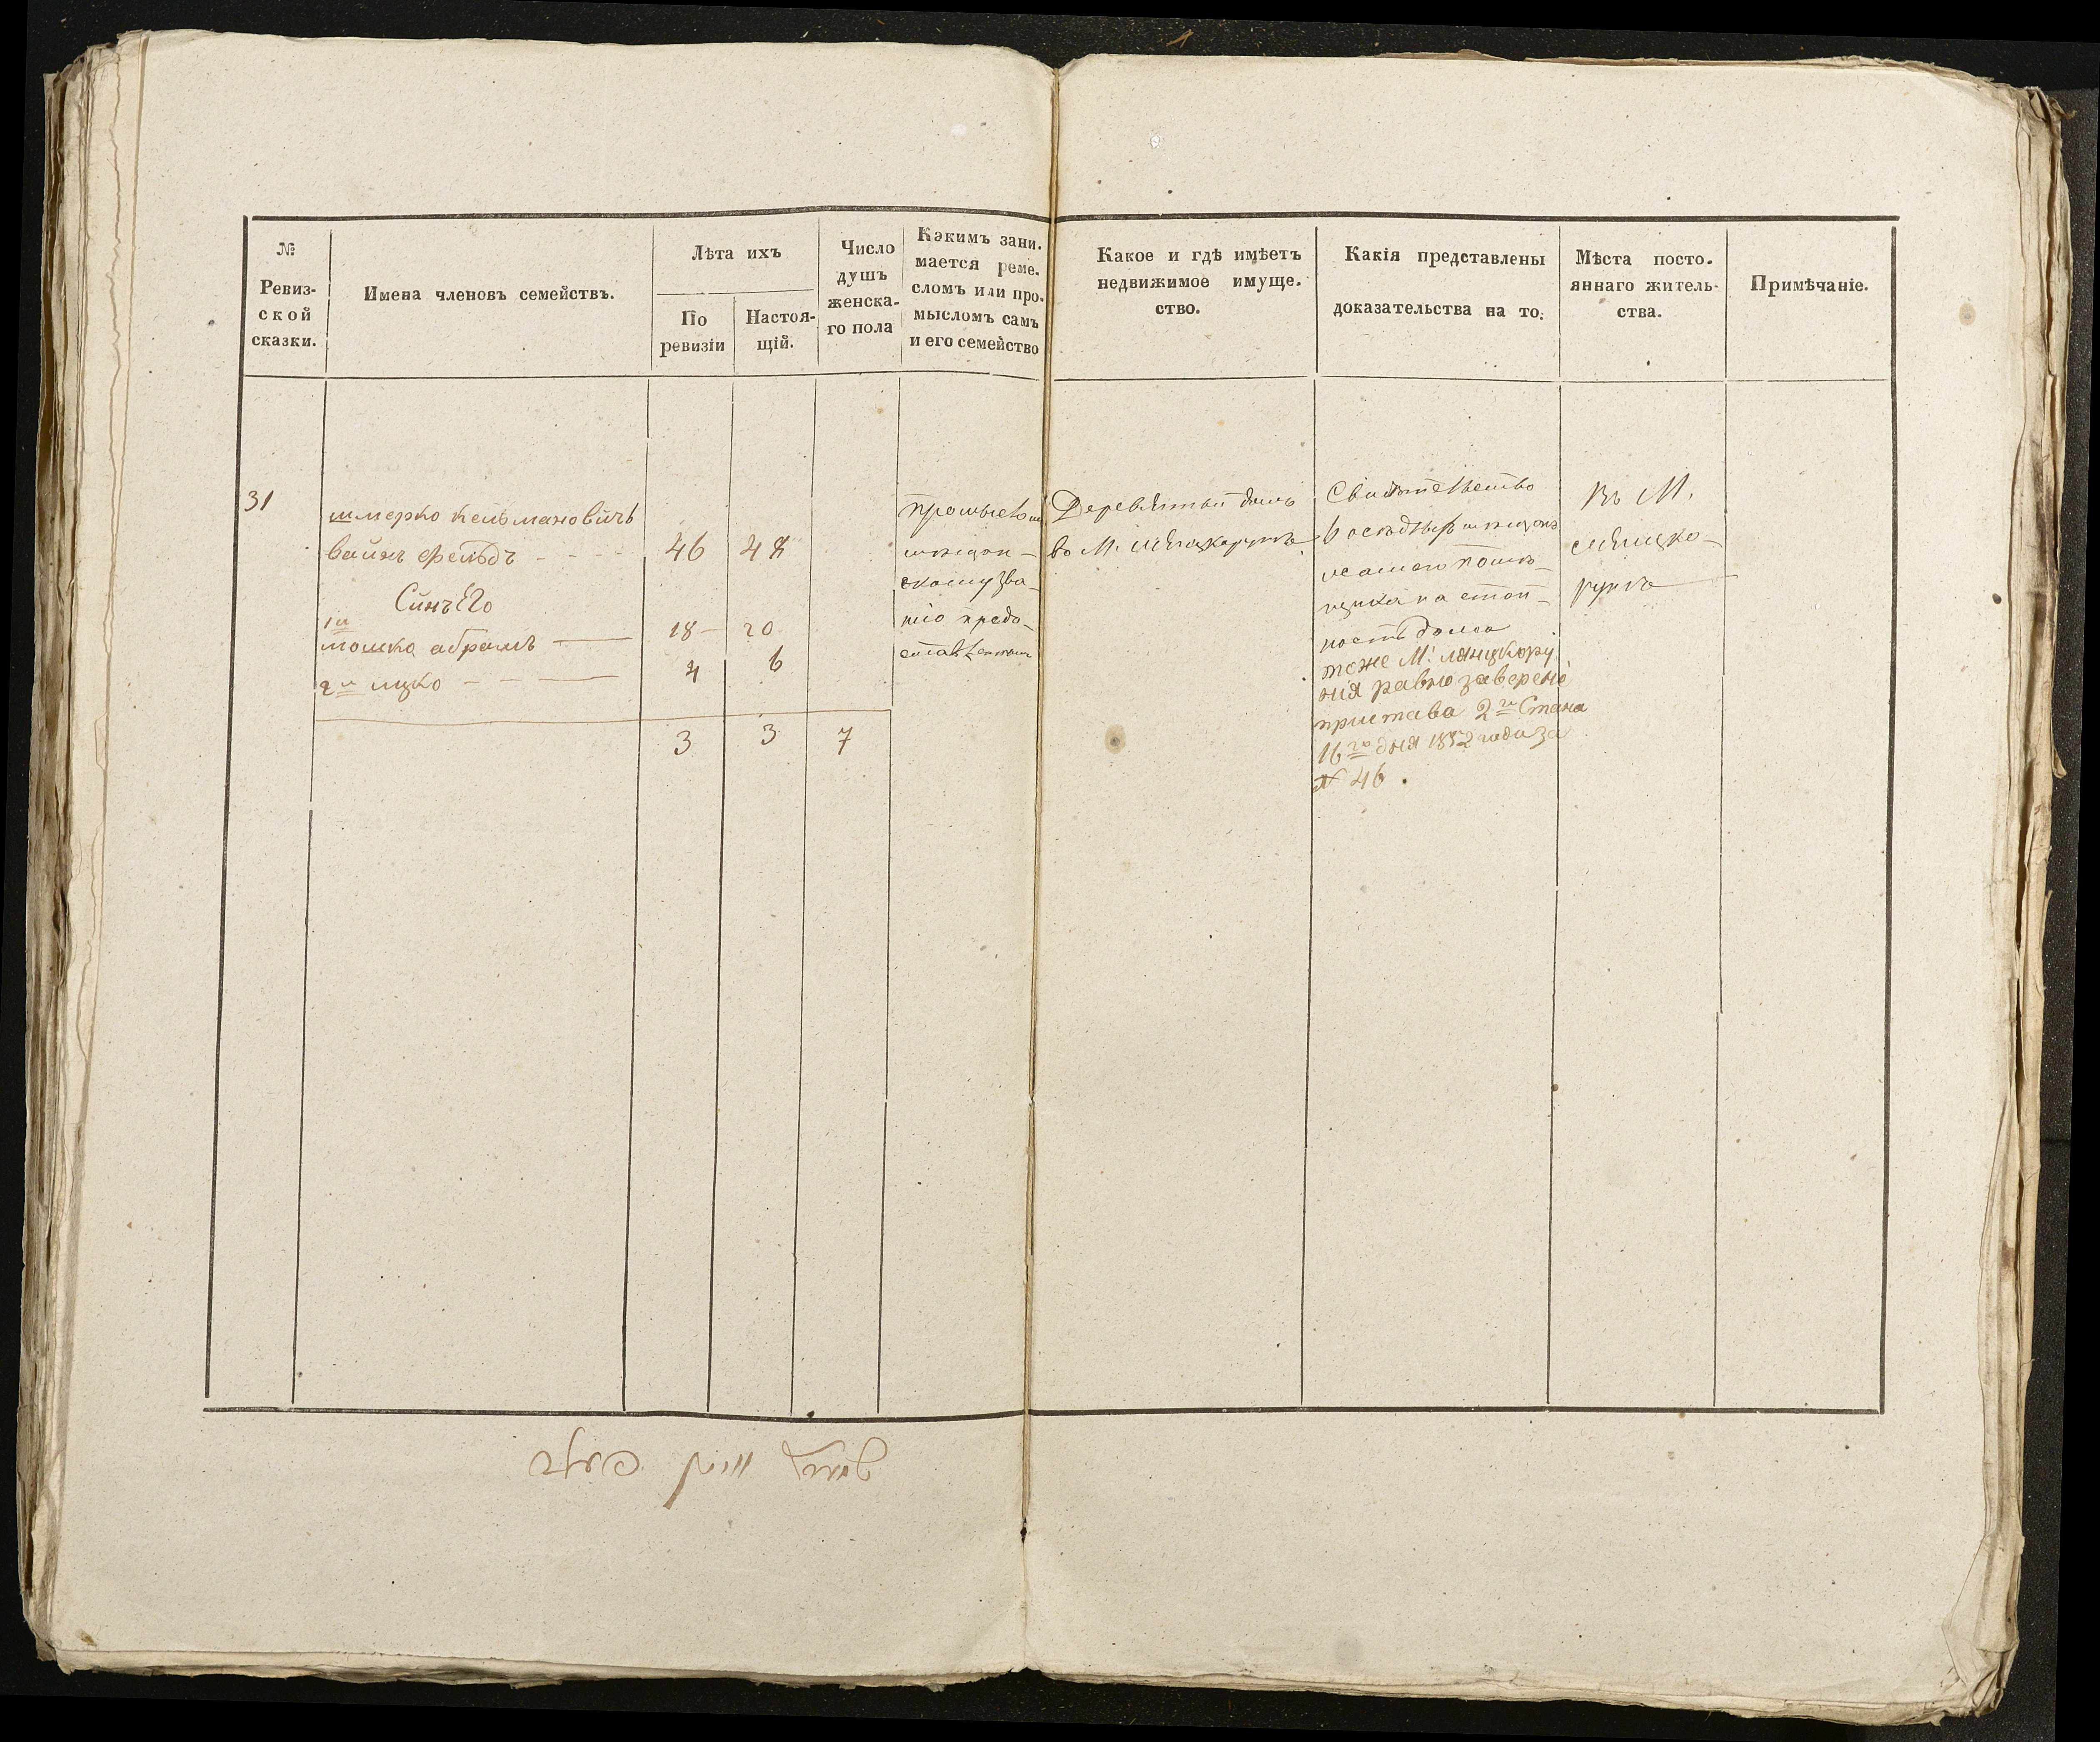 №
Ревиз-
ской
сказки.
Имена членовъ семействъ.
Лѣта ихъ
По
ревизіи
Настоя-
щій.
Число
душъ
женска-
го пола
Какимъ зани-
мается реме-
сломъ или про-
мысломъ самъ
и его семейство
Какое и гдѣ имѣетъ
недвижимое имуще-
ство.
Какія представлены
доказательства на то.
Мѣста посто-
яннаго житель-
ства.
Примѣчаніе.
31
шмерко кельмановичъ
вайнъ фельдъ 46 48
Синъ Его
1й
мошко абрамъ 18 20
2й ицко 4 6
3 3 7
промысломъ
мещан-
скому зва-
нію предо-
ставленнымъ
Деревянный домъ
во М.
Свидѣтельство
на стои-
ность дома
тоже М. лянцкору
нія равно заверене
пристава 2го Стана
16го дня 1852 года за
№ 46.
въ М.
лянцко-
рунѣ